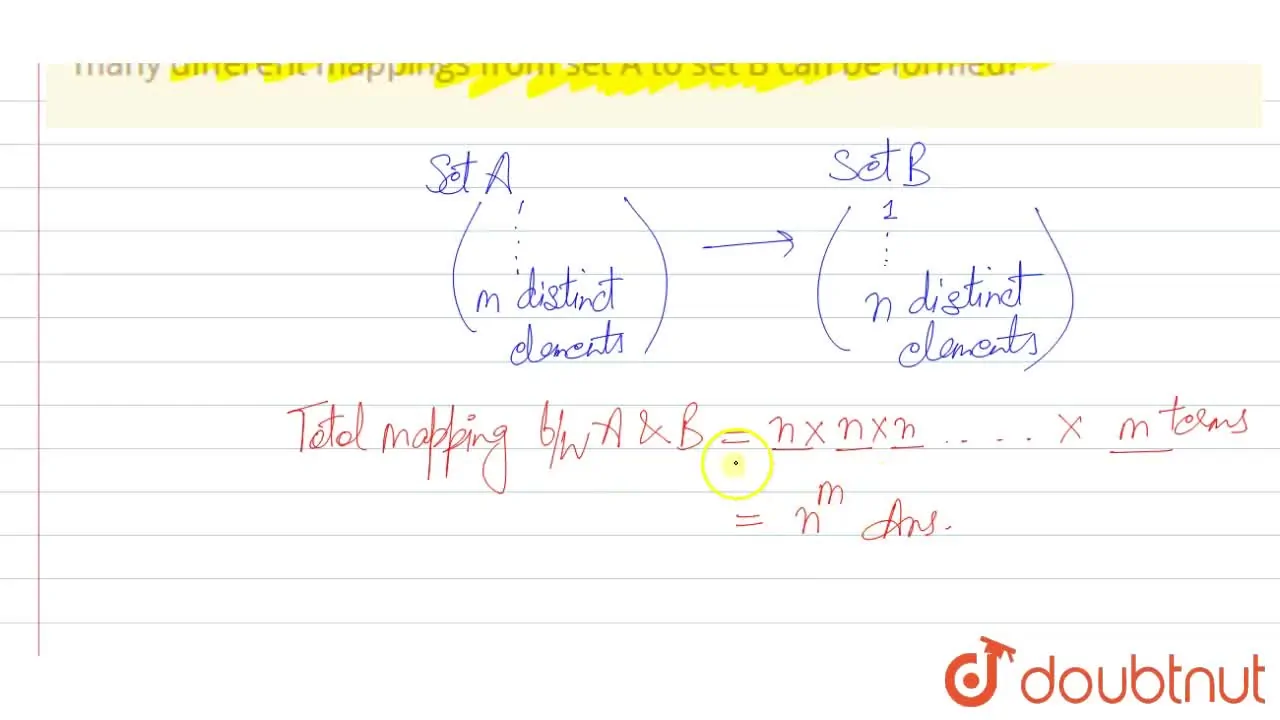 many different mappings from set A to set B can be formed?
Set A
Set B
1
1
m distinct
elements
n distinct
elements
Total mapping b/w A & B = n x n x n .... x m terms
= n^m Ans.
doubtnut